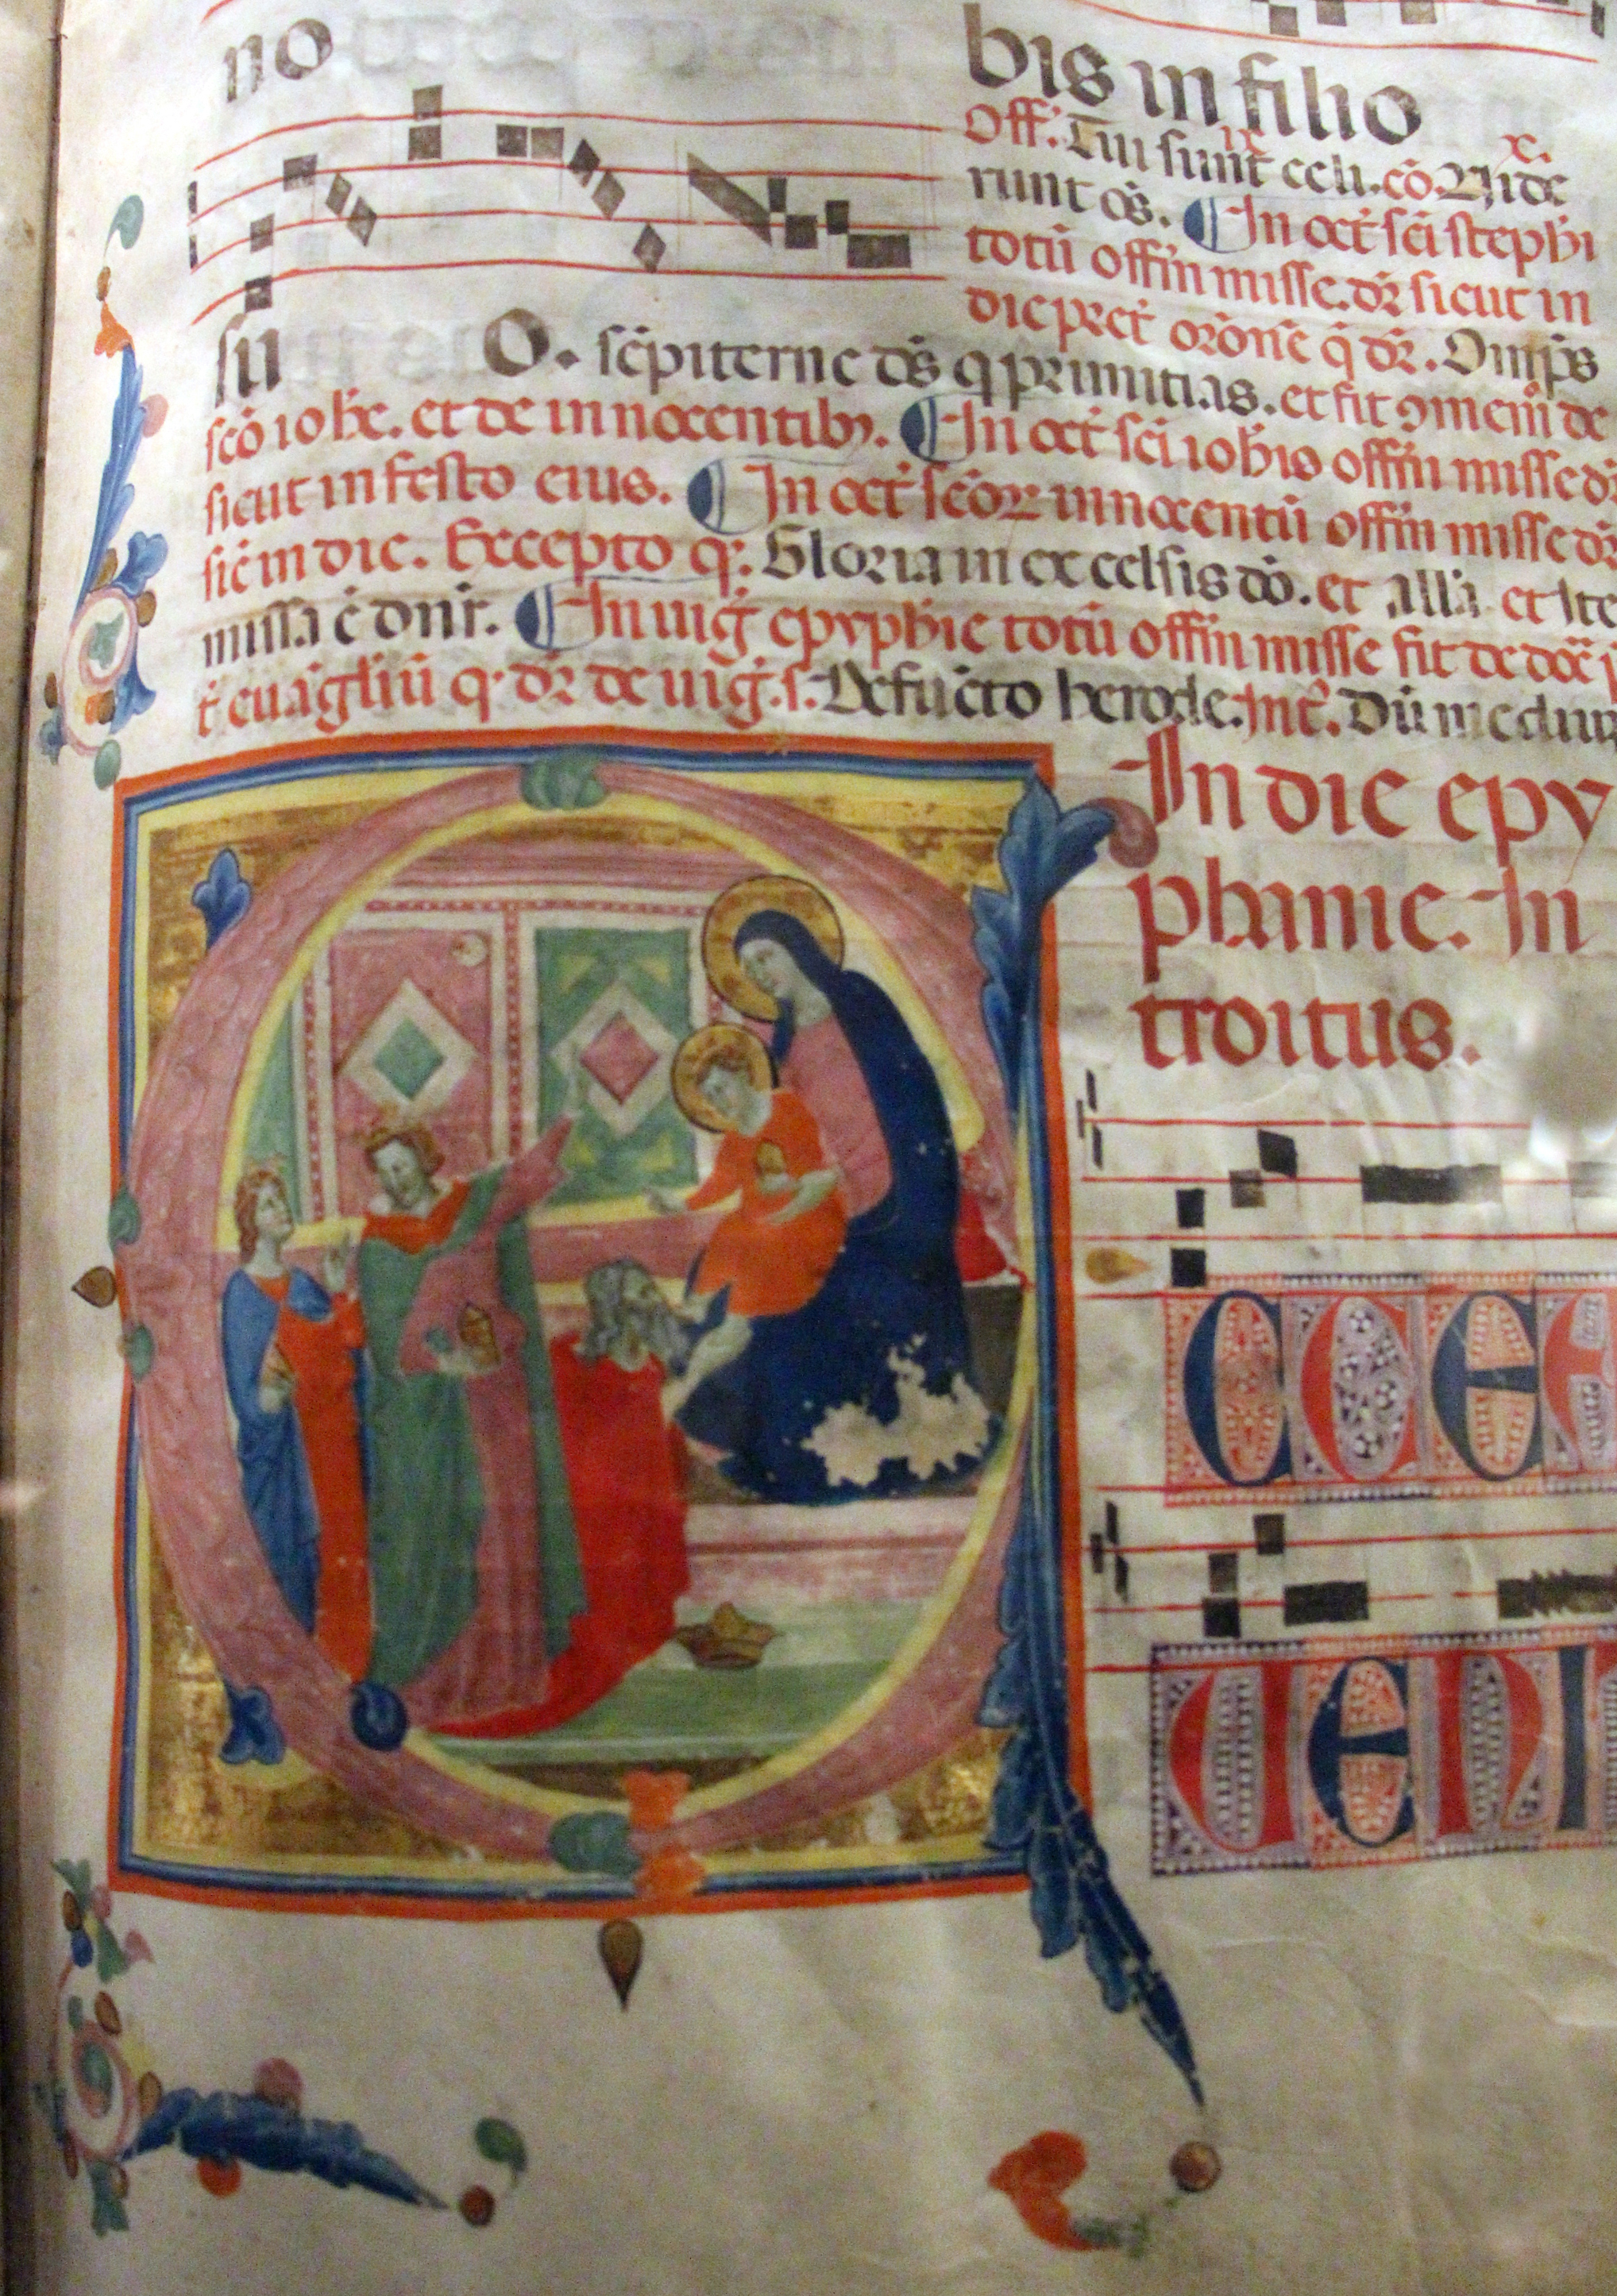 no bis in filio
Off. Tui sunt celi. cō. Uide
runt os̄. In oct̄ sc̄i stephi
totū offm̄ misse. dr̄ sicut in
die pret̄ orōne q̄ dr̄. Omp̄s
su O. sēpiterne ds̄ q primitias. et fit ꝯmem̄ de
sc̄o iohe. et de innocentibꝫ. In oct̄ sc̄i iohis offm̄ misse dr̄
sicut in festo eius. In oct̄ sc̄oꝝ innocentū offm̄ misse dr̄
sic̄ in die. Excepto q. Gloria in excelsis dō. et all̄a et Ite
missa ē dnr̄. In uiḡ epyphie totū offm̄ misse fit de
t̄ euāgliū q dr̄ de uiḡ. s. Defūcto herode. Int̄. Dū mediū
In die epy
phanie. In
troitus.
ECCE
UENI